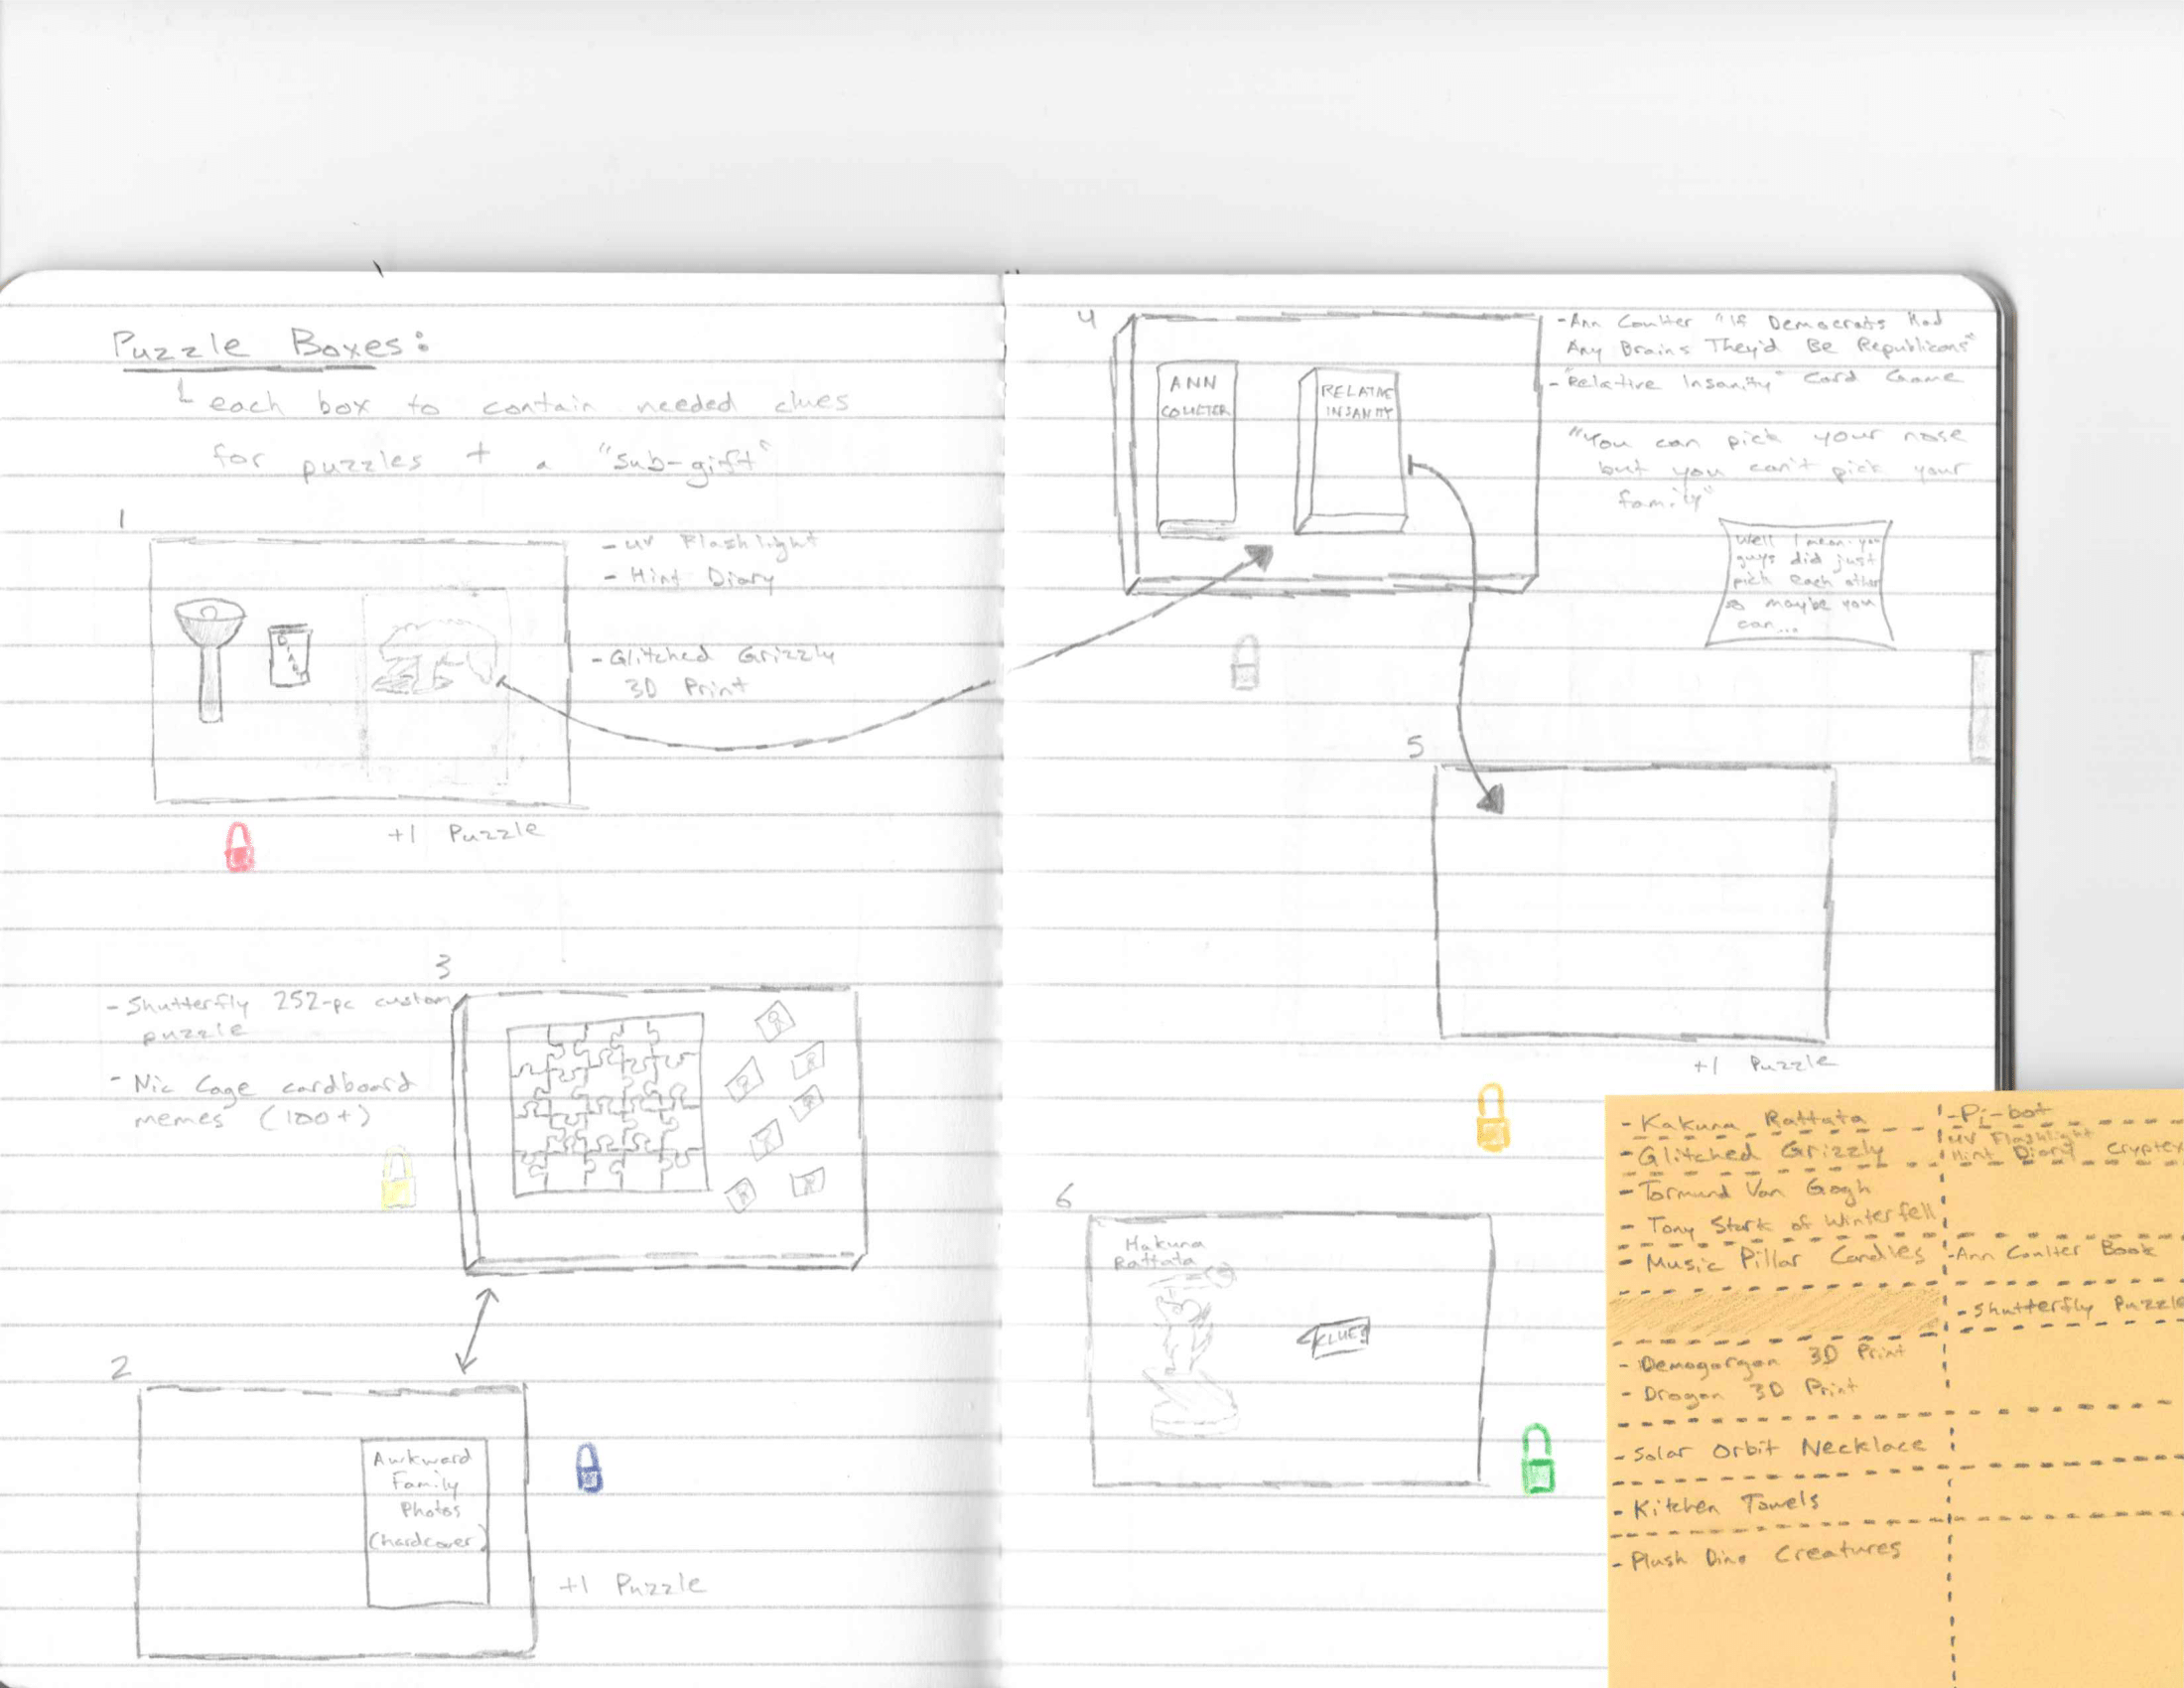 Puzzle Boxes:
each box to contain needed clues
for puzzles + a "sub-gift"
1
- UV Flashlight
- Hint Diary
- Glitched Grizzly
3D Print
DIARY
+1 Puzzle
3
- Shutterfly 252-pc custom
puzzle
- Nic Cage cardboard
memes (100+)
2
Awkward
Family
Photos
(hardcover)
+1 Puzzle
4
ANN
COULTER
RELATIVE
INSANITY
- Ann Coulter "If Democrats Had
Any Brains They'd Be Republicans"
- "Relative Insanity" Card Game
"You can pick your nose
but you can't pick your
family"
Well I mean you
guys did just
pick each other
so maybe you
can...
5
+1 Puzzle
6
Hakuna
Rattata
CLUES
- Kakuna Rattata
- Glitched Grizzly
- Tormund Van Gogh
- Tony Stark of Winterfell
- Music Pillar Candles
- Demogorgon 3D Print
- Drogon 3D Print
- Solar Orbit Necklace
- Kitchen Towels
- Plush Dino Creatures
- Pi-bot
UV Flashlight
Hint Diary Cryptex
- Ann Coulter Book
- Shutterfly Puzzle